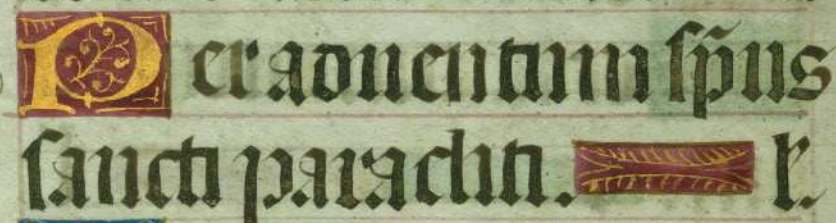 Per aduentum sp̄us
sancti paracliti. l.